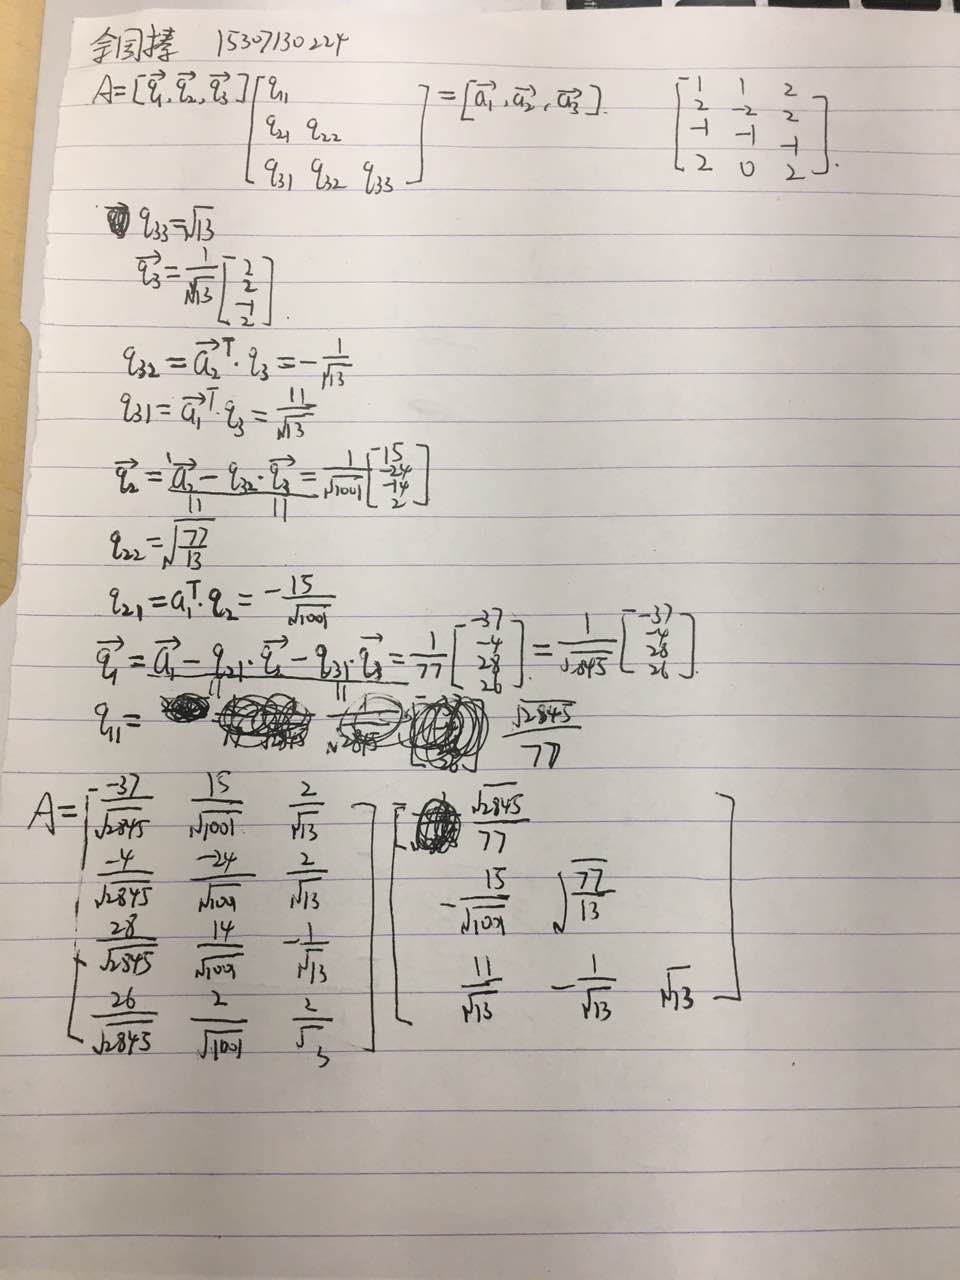 15307130224
A=[q⃗₁, q⃗₂, q⃗₃][q₁₁; q₂₁ q₂₂; q₃₁ q₃₂ q₃₃] = [a⃗₁, a⃗₂, a⃗₃]. [1 1 2; 2 -2 2; -1 -1 -1; 2 0 2].
q₃₃=√13
q⃗₃=1/√13 [2; 2; -1; 2].
q₃₂=a⃗₂ᵀ·q₃=-1/√13
q₃₁=a⃗₁ᵀ·q₃=11/√13
q⃗₂=(a⃗₂-q₃₂·q⃗₃)/‖ ‖=1/√1001 [15; -24; -14; 2]
q₂₂=√(77/13)
q₂₁=a₁ᵀ·q₂=-15/√1001
q⃗₁=(a⃗₁-q₂₁·q⃗₂-q₃₁·q⃗₃)/‖ ‖=1/77 [-37; -4; 28; 26].=1/√2845 [-37; -4; 28; 26].
q₁₁= √2845/77
A=[-37/√2845 15/√1001 2/√13; -4/√2845 -24/√1001 2/√13; 28/√2845 14/√1001 -1/√13; 26/√2845 2/√1001 2/√ 3][√2845/77; -15/√1001 √(77/13); 11/√13 -1/√13 √13]